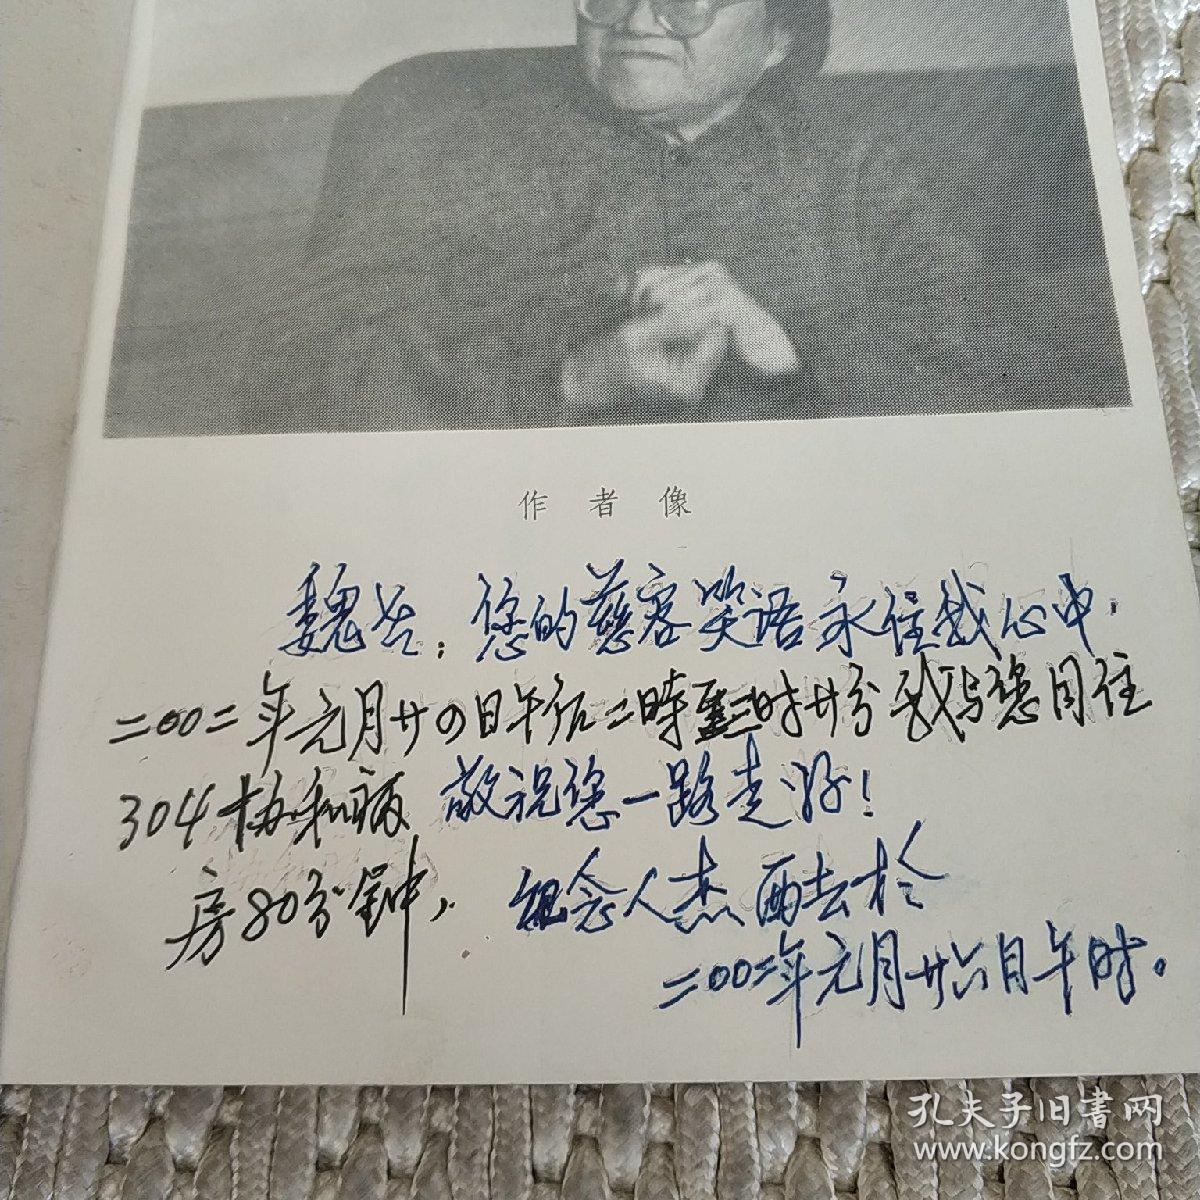 作者像
魏老：您的慈容笑语永住我心中，
二00二年元月廿四日午后二時至三时廿分我与您同住
304协和病 敬祝您一路走好！
房80分钟， 纪念人杰西去於
二00二年元月廿六日午时。
孔夫子旧書网
www.kongfz.com